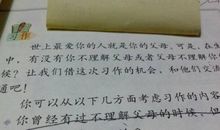 世上最爱你的人就是你的父母，可是，在生
中，有没有你不理解父母或者父母不理解你
候？让我们借这次习作的机会，和他们交
通吧！
你可以从以下几方面考虑习作的内容
你曾经有过不理解父母的时候，但